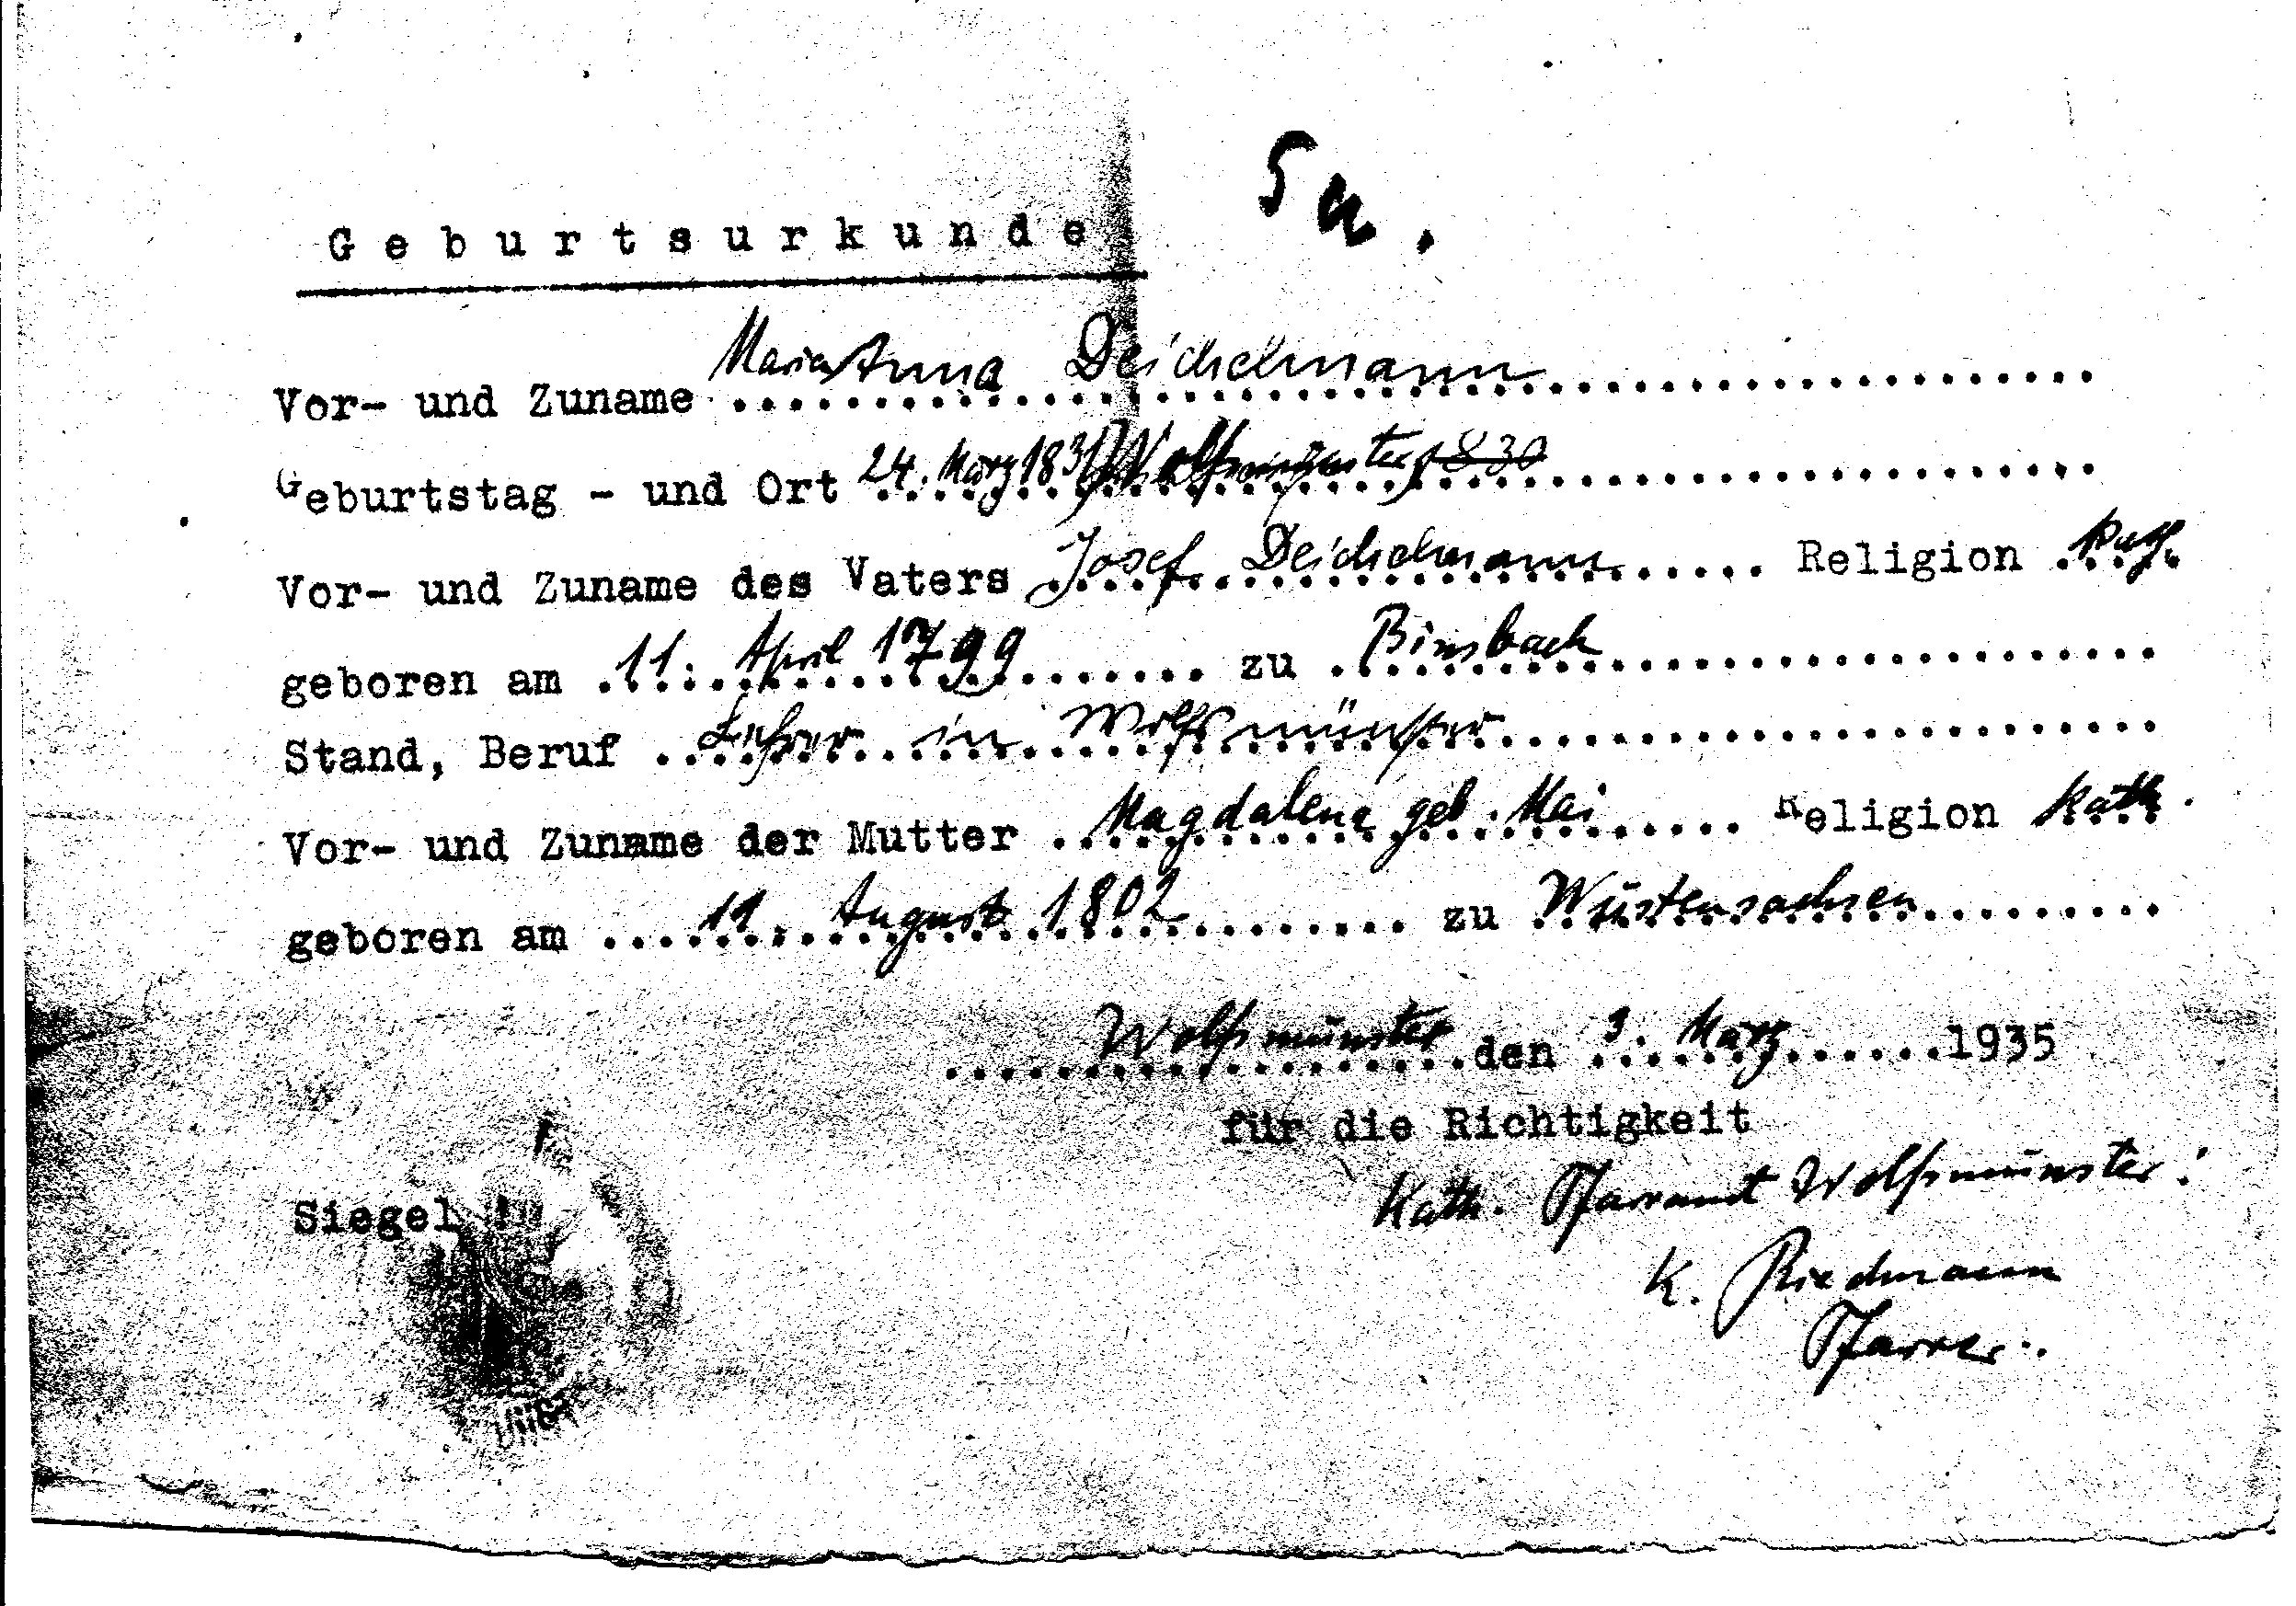 5 a.
Geburtsurkunde
Vor- und Zuname Maria Anna Deichelmann
Geburtstag - und Ort 24. März 1830 Wolfsmünster 1830
Vor- und Zuname des Vaters Josef Deichelmann Religion kath.
geboren am 11. April 1799 zu Binsbach
Stand, Beruf Lehrer in Wolfsmünster
Vor- und Zuname der Mutter Magdalena geb. Mai Religion kath.
geboren am 11. August 1802 zu Wüstensachsen
Wolfsmünster den 3. März 1935
für die Richtigkeit
Kath. Pfarramt Wolfsmünster:
Siegel
K. Riedmann
Pfarrer.